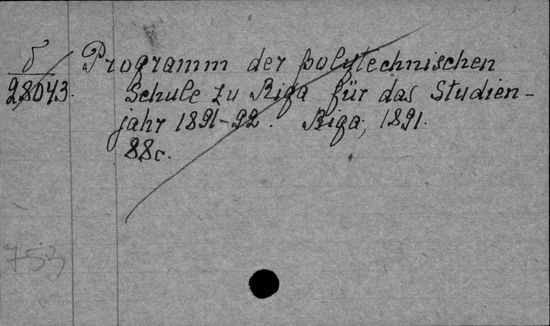 δ
28043.
Programm der polytechnischen
Schule zu Riga für das Studien-
jahr 1891-92. Riga, 1891.
88c.
753